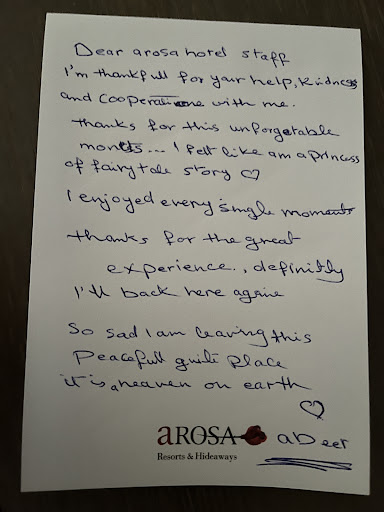 Dear arosa hotel staff
I'm thankfull for your help, Kindness
and cooperatione with me.
thanks for this unforgetable
months... I felt like am a princess
of fairytale story ♡
I enjoyed every single moments
thanks for the great
experience., definitly
I'll back here againe
So sad I am leaving this
Peacefull guite Place
it is a heaven on earth
♡
aROSA
Resorts & Hideaways
aBeer